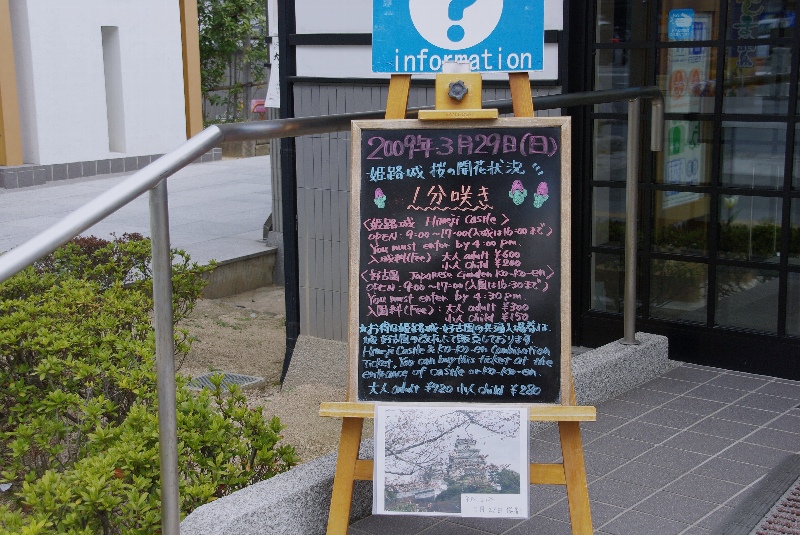 ?
information
2009年3月29日(日)
姫路城 桜の開花状況
1分咲き
<姫路城 Himeji Castle>
OPEN：9:00～17:00(入城は16:00まで)
You must enter by 4:00 pm.
入城料(Fee) 大人 adult ¥600
小人 child ¥200
<好古園 Japanese Garden Ko-ko-en>
OPEN：9:00～17:00(入園は16:30まで)
You must enter by 4:30 pm.
入園料(Fee)：大人 adult ¥300
小人 child ¥150
★お得な姫路城・好古園の共通入場券は、
城・好古園の改札して販売しております。
Himeji Castle & Ko-ko-en Combination
Ticket, You can buy this ticket at the
entrance of castle or Ko-ko-en.
大人 adult ¥720 小人 child ¥280